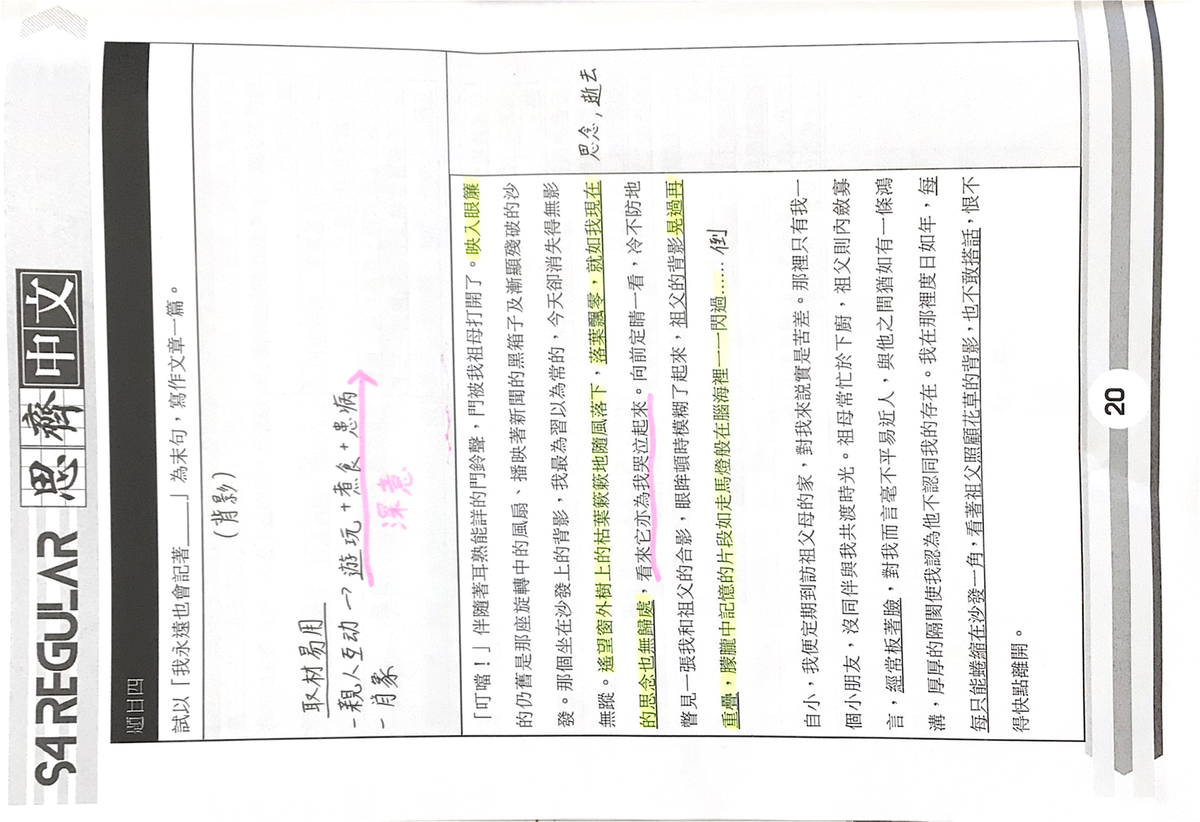 S4 REGULAR 思齊中文
題目四
試以「我永遠也會記著______」為末句，寫作文章一篇。
(背影)
取材易用
- 親人互动 → 遊玩 + 煮食 + 患病
深意
- 肖象
「叮噹！」伴隨著耳熟能詳的門鈴聲，門被我祖母打開了。映入眼簾
的仍舊是那座旋轉中的風扇、播映著新聞的黑箱子及漸顯殘破的沙
發。那個坐在沙發上的背影，我最為習以為常的，今天卻消失得無影
無蹤。遙望窗外樹上的枯葉簌簌地隨風落下，落葉飄零，就如我現在
的思念也無歸處，看來它亦為我哭泣起來。向前定睛一看，冷不防地
瞥見一張我和祖父的合影，眼眸頓時模糊了起來，祖父的背影晃過再
重疊，朦朧中記憶的片段如走馬燈般在腦海裡一一閃過…… 倒
思念，逝去
自小，我便定期到訪祖父母的家，對我來説實是苦差。那裡只有我一
個小朋友，沒同伴與我共渡時光。祖母常忙於下廚，祖父則內斂寡
言，經常板著臉，對我而言毫不平易近人，與他之間猶如有一條鴻
溝，厚厚的隔閡使我認為他不認同我的存在。我在那裡度日如年，每
每只能蜷縮在沙發一角，看著祖父照顧花草的背影，也不敢搭話，恨不
得快點離開。
20